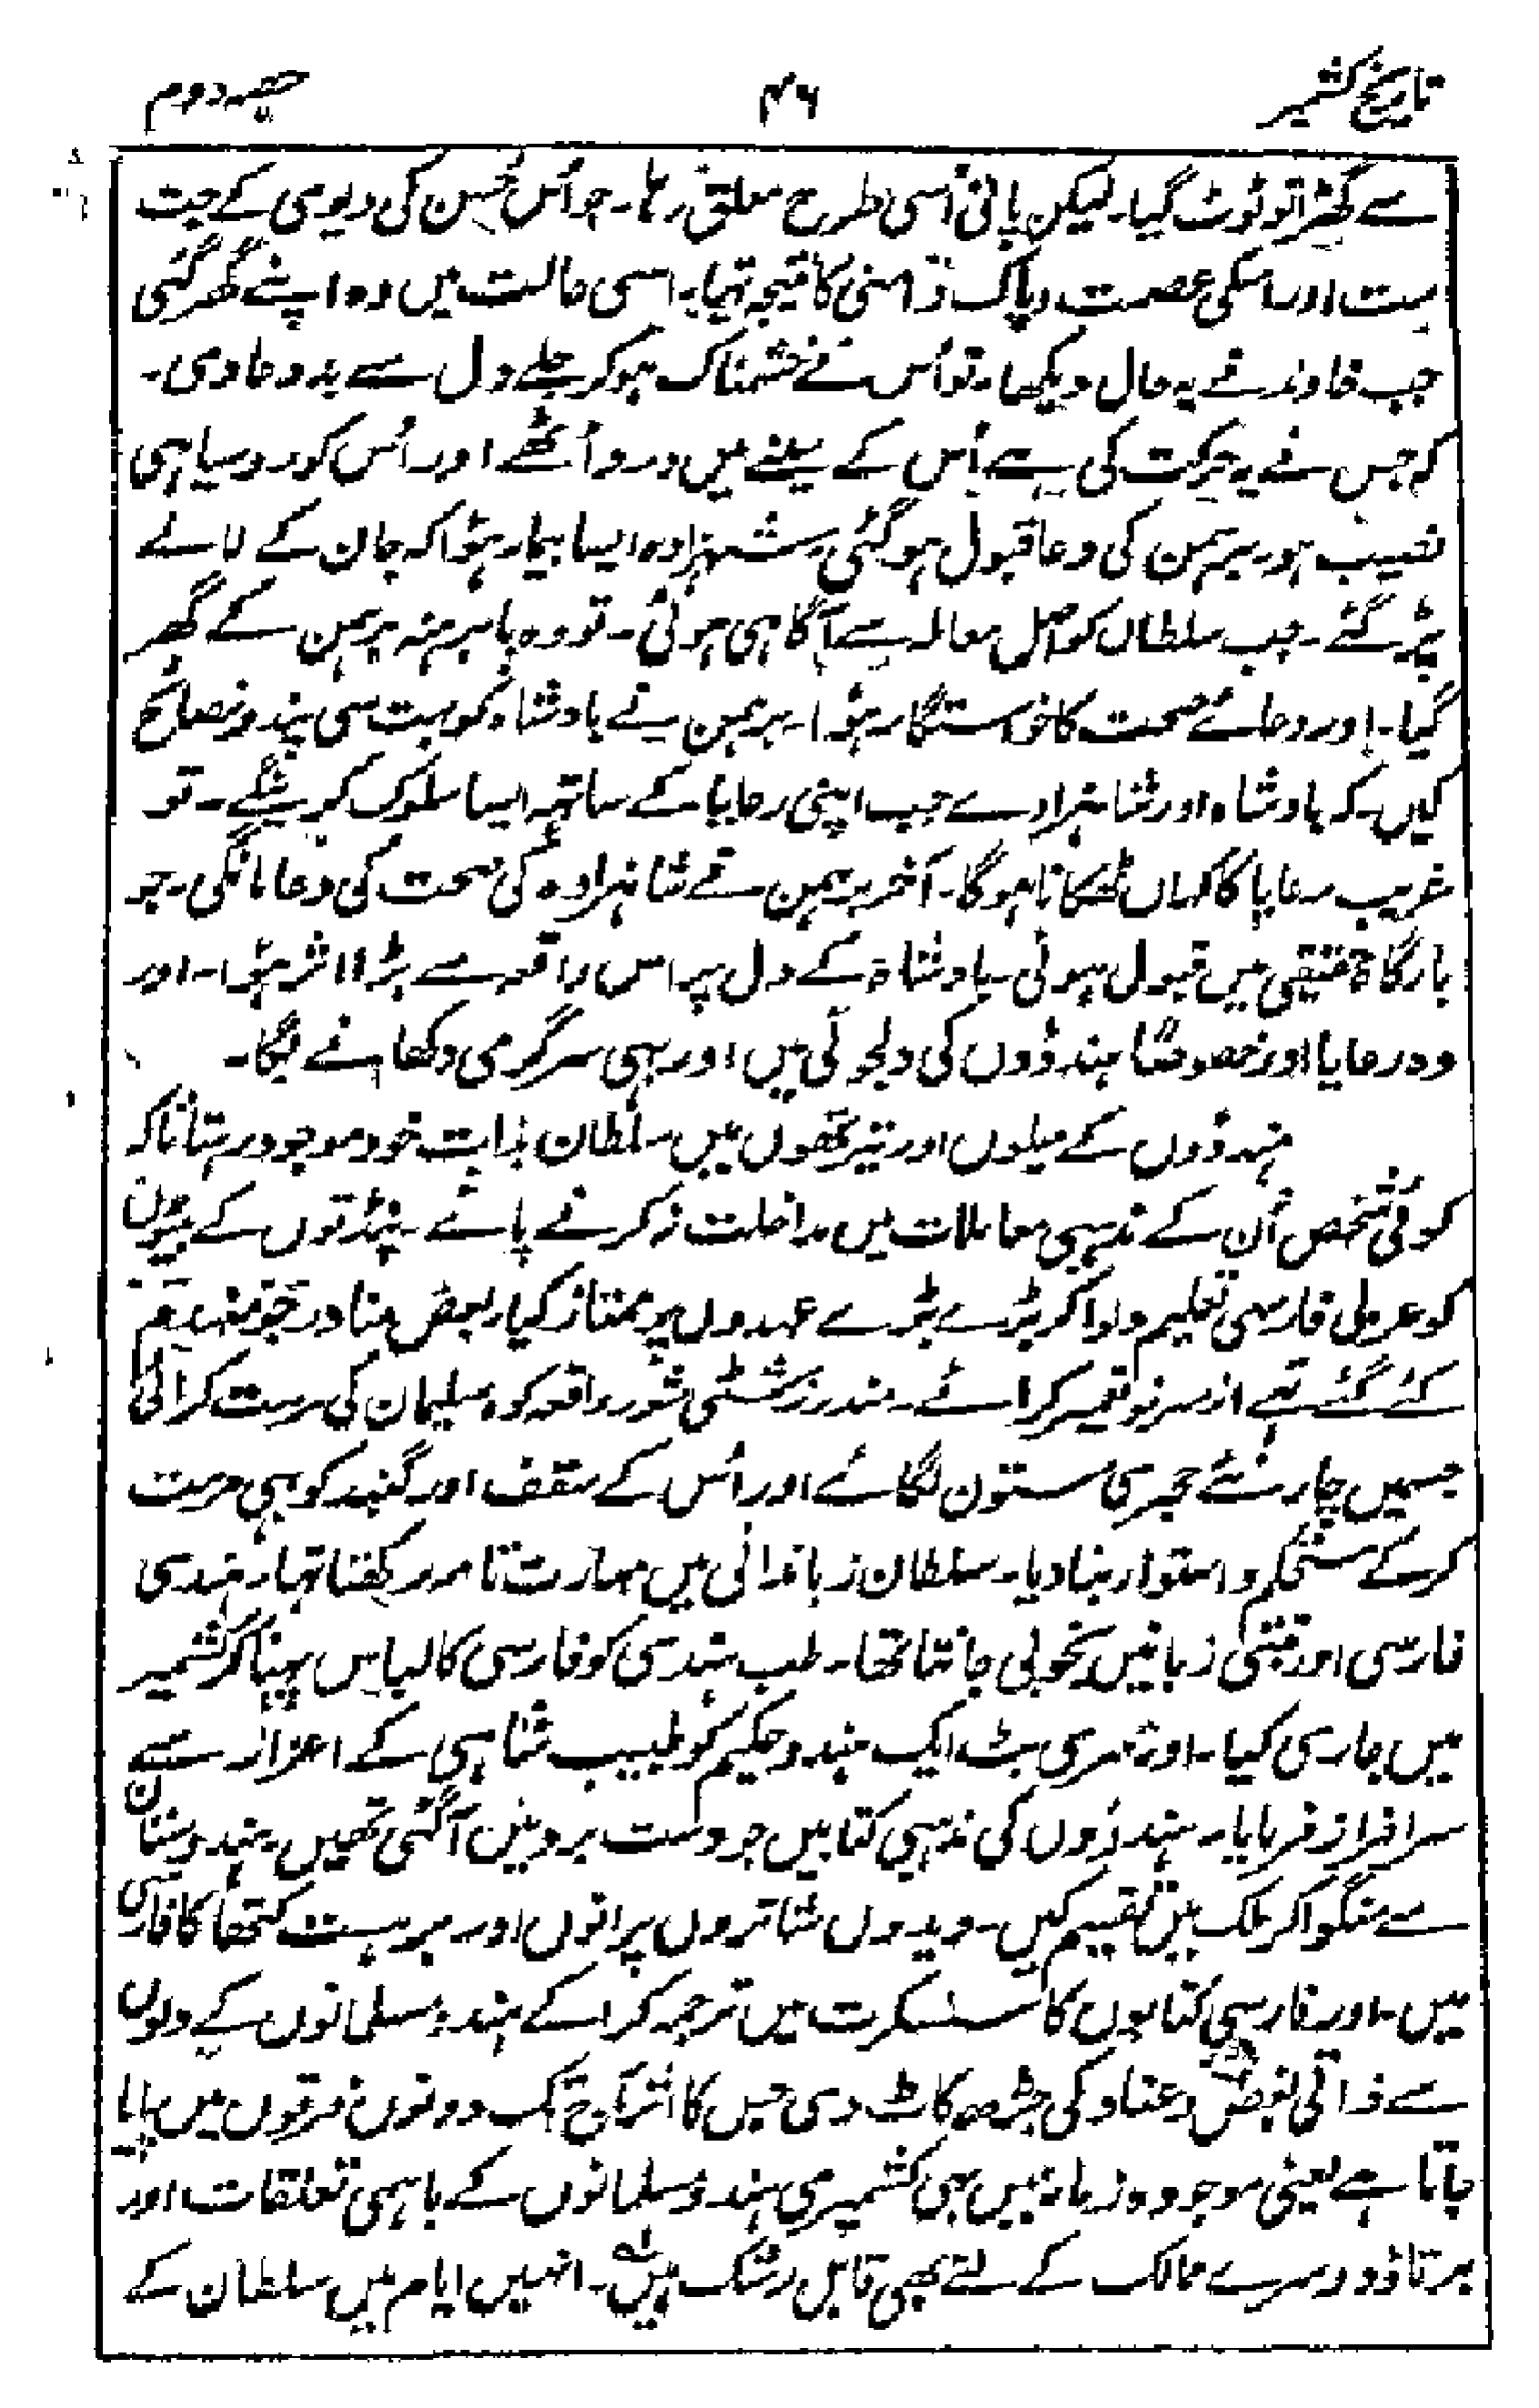 تاریخ کشمیر
۴۶
حصہ دوم
سے گھڑا تو ٹوٹ گیا۔ لیکن پانی اُسی طرح معلق رہا۔ جو اُس حُسن کی دیوی کے جت
ست اور اسکی عصمت و پاک دامنی کا نتیجہ تھا۔ اسی حالت میں وہ اپنے گھر گئی
جب خاوند نے یہ حال دیکھا۔ تو اُس نے خشمناک ہو کر جلے دل سے بد دعا دی۔
کہ جس نے یہ حرکت کی ہے اُس کے سینے میں درد اُٹھے اور اُس کو روسیاہی
نصیب ہو۔ برہمن کی دعا قبول ہو گئی۔ شہزادہ ایسا بیمار ہؤا کہ جان کے لالے
پڑ گئے۔ جب سلطان کو اصل معاملہ سے آگاہی ہوئی۔ تو وہ پا برہنہ برہمن کے گھر
گیا۔ اور دعائے صحت کا خواستگار ہؤا۔ برہمن نے بادشاہ کو بہت سی پند و نصائح
کیں۔ کہ بادشاہ اور شاہزادے جب اپنی رعایا کے ساتھ ایسا سلوک کرینگے۔ تو
غریب رعایا کا کہاں ٹھکانا ہوگا۔ آخر برہمن نے شاہزادہ کی صحت کی دعا مانگی۔ جو
بارگاہ حقیقی میں قبول ہوئی۔ بادشاہ کے دل پر اس واقعہ سے بڑا اثر ہؤا۔ اور
وہ رعایا اور خصوصًا ہندؤوں کی دلجوئی میں اور بھی سرگرمی دکھانے لگا۔
ہندؤوں کے میلوں اور تیرتھوں میں سلطان بذات خود موجود رہتا تاکہ
کوئی شخص اُن کے مذہبی معاملات میں مداخلت نہ کرنے پائے۔ پنڈتوں کے بیٹوں
کو عربی فارسی تعلیم دلوا کر بڑے بڑے عہدوں پر ممتاز کیا۔ بعض منادر جو منہدم
کئے گئے تھے از سر نو تعمیر کرائے۔ مندر زشٹی شور واقعہ کوہ سلیمان کی مرمت کرائی
جسمیں چار نئے حجری ستون لگائے اور اُس کے سقف اور گنبد کو بھی مرمت
کر کے مستحکم و استوار بنا دیا۔ سلطان زباندانی میں مہارت تامہ رکھتا تھا۔ ہندی
فارسی اور تبتی زبانیں بخوبی جانتا تھا۔ طب ہندی کو فارسی کا لباس پہنا کر کشمیر
میں جاری کیا۔ اور سری بٹ ایک ہندو حکیم کو طبیب شاہی کے اعزاز سے
سرافراز فرمایا۔ ہندؤوں کی مذہبی کتابیں جو دست برد میں آ گئی تھیں۔ ہندوستان
سے منگوا کر ملک میں تقسیم کیں۔ ویدوں شاستروں پرانوں اور برہت کتھا کا فارسی
میں۔ اور فارسی کتابوں کا سنسکرت میں ترجمہ کرا کے ہندو مسلمانوں کے دلوں
سے ذاتی بغض و عناد کی جڑھ کاٹ دی جس کا اثر آج تک دونوں فرقوں میں پایا
جاتا ہے یعنی موجودہ زمانہ میں بھی کشمیری ہندو مسلمانوں کے باہمی تعلقات اور
برتاؤ دوسرے ممالک کے لئے بھی قابل رشک ہیں۔ انہیں ایام میں سلطان کے